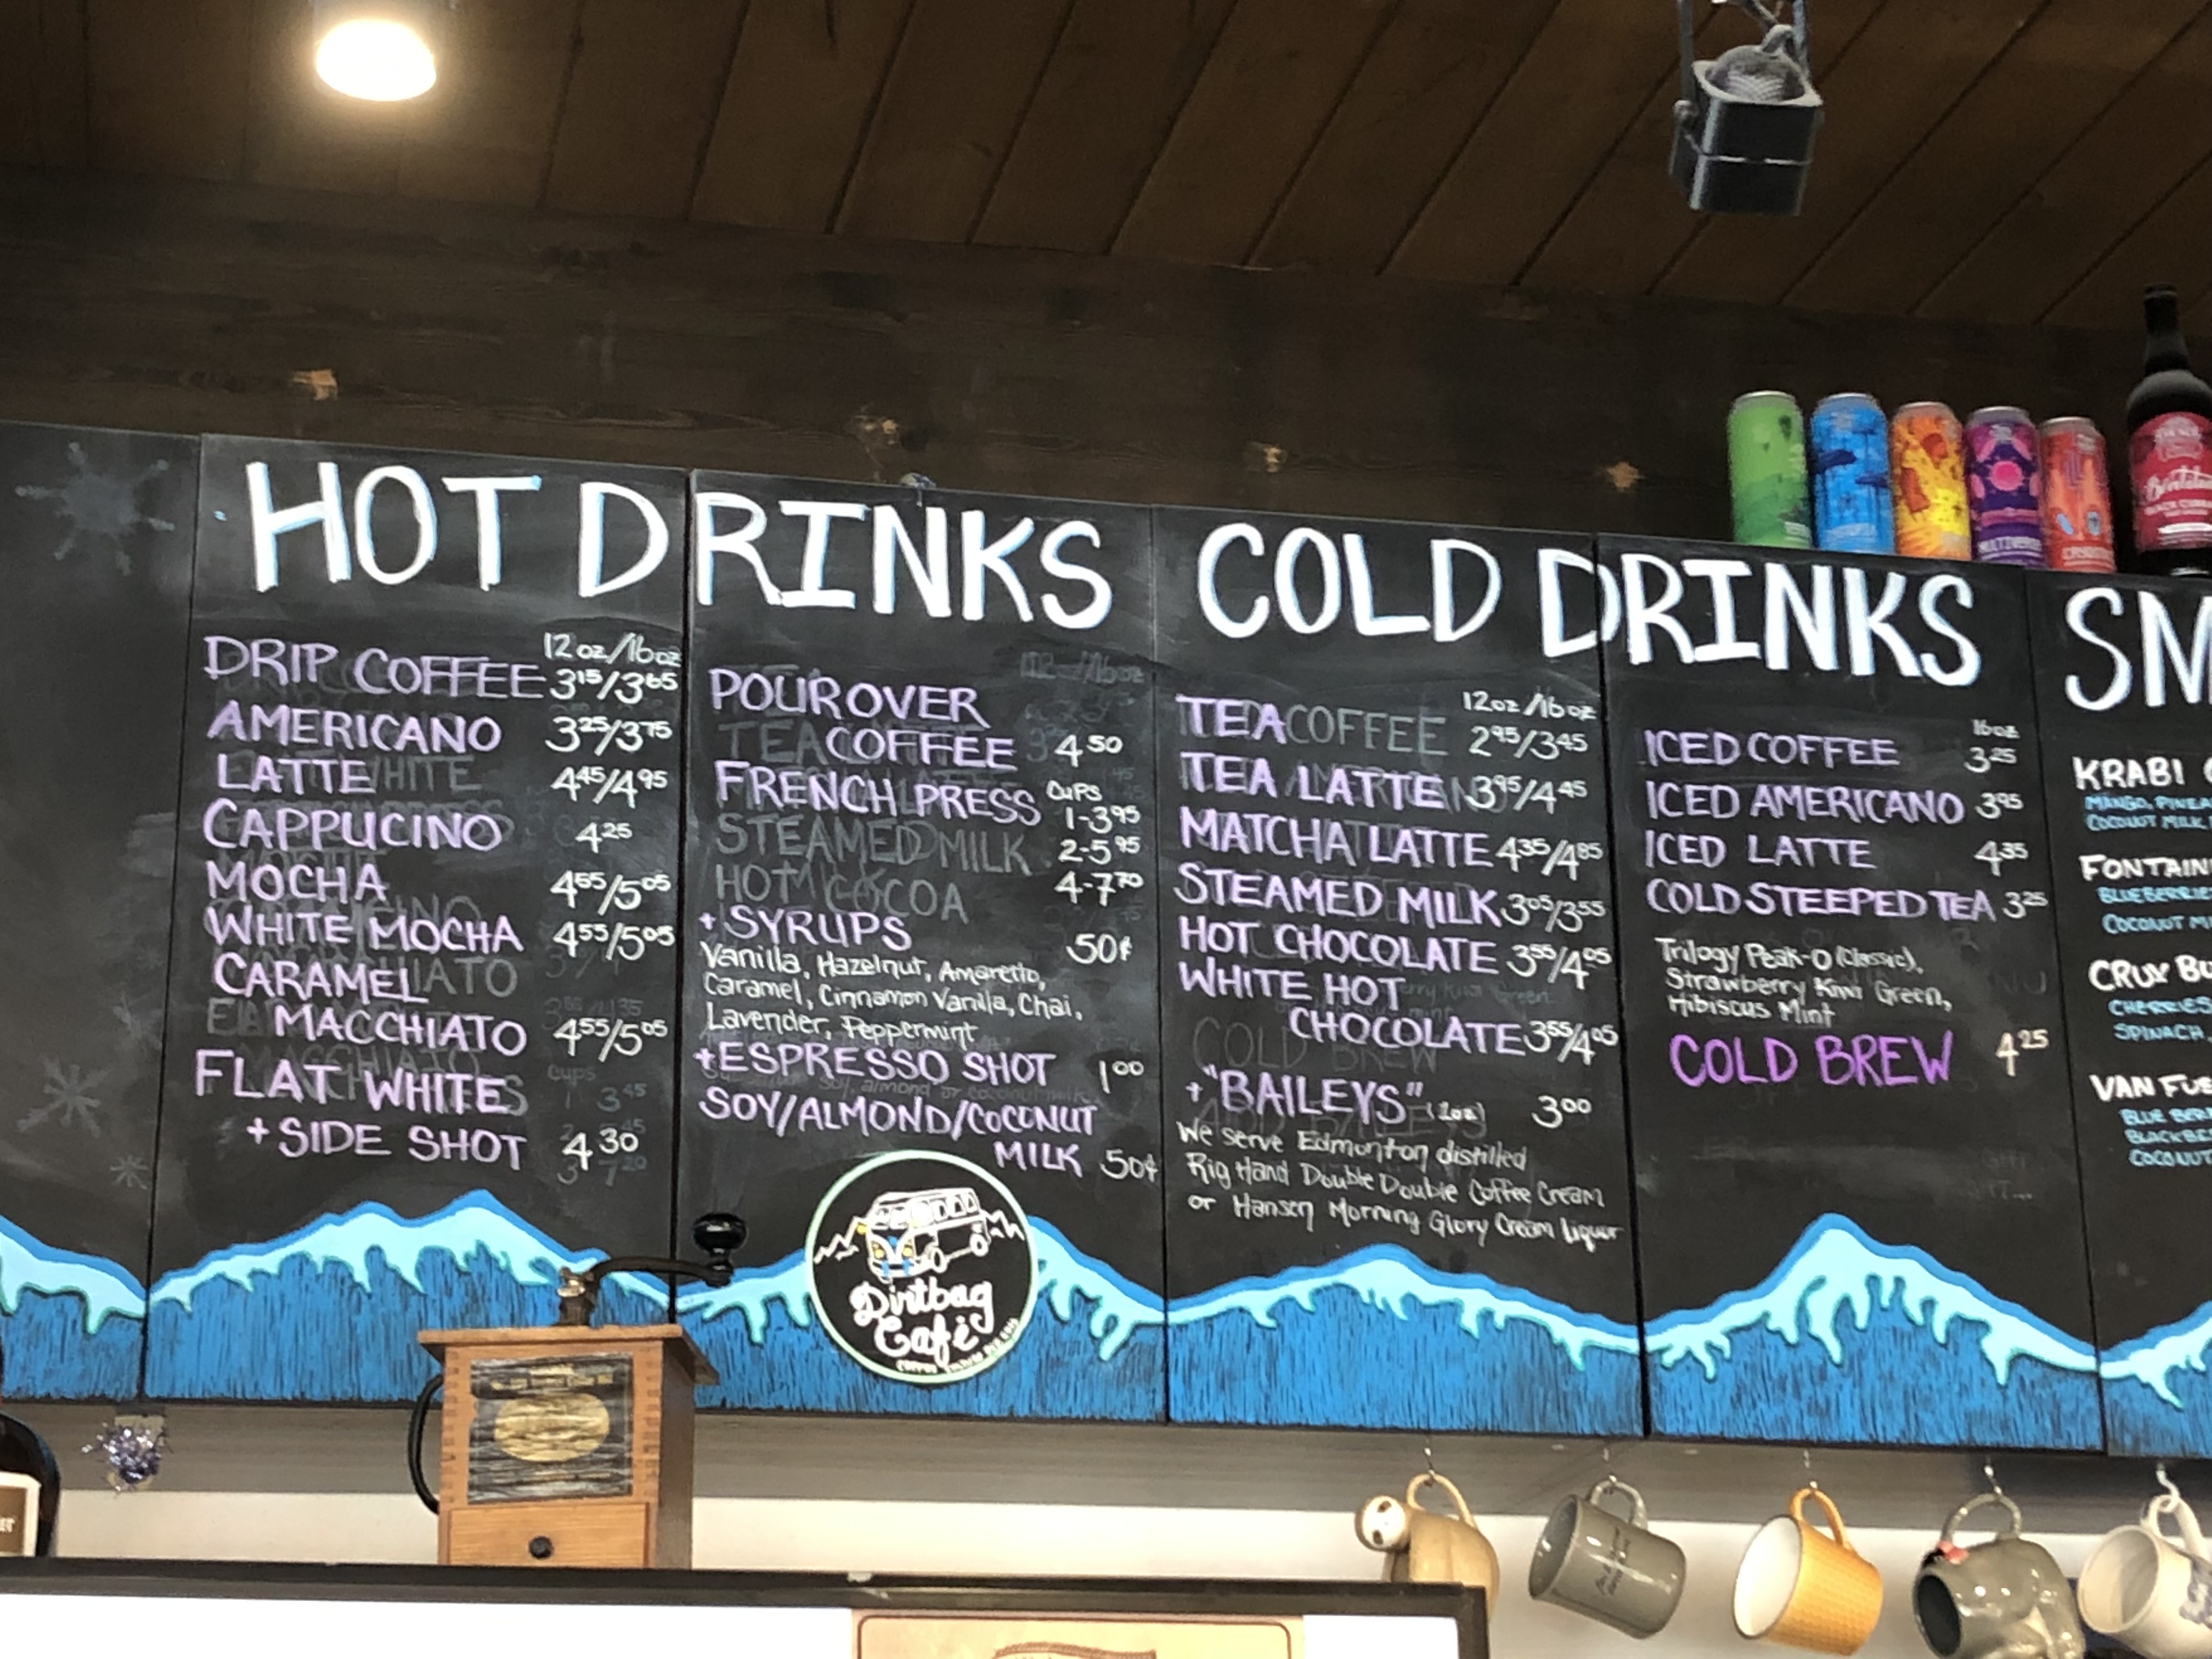 HOT DRINKS
12oz/16oz
DRIP COFFEE 3.15/3.65
AMERICANO 3.25/3.75
LATTE 4.45/4.95
CAPPUCINO 4.25
MOCHA 4.55/5.05
WHITE MOCHA 4.55/5.05
CARAMEL
MACCHIATO 4.55/5.05
FLAT WHITE
+ SIDE SHOT 4.30
POUROVER
COFFEE 4.50
FRENCH PRESS CUPS
1-3.95
2-5.95
4-7.70
+SYRUPS 50¢
Vanilla, Hazelnut, Amaretto,
Caramel, Cinnamon Vanilla, Chai,
Lavender, Peppermint
+ESPRESSO SHOT 1.00
SOY/ALMOND/COCONUT
MILK 50¢
Dirtbag
Café
COLD DRINKS
12oz/16oz
TEA 2.95/3.45
TEA LATTE 3.95/4.45
MATCHA LATTE 4.35/4.85
STEAMED MILK 3.05/3.55
HOT CHOCOLATE 3.55/4.05
WHITE HOT
CHOCOLATE 3.55/4.05
+"BAILEYS" (1oz) 3.00
We serve Edmonton distilled
Rig Hand Double Double Coffee Cream
or Hansen Morning Glory Cream liquor
16oz
ICED COFFEE 3.25
ICED AMERICANO 3.95
ICED LATTE 4.35
COLD STEEPED TEA 3.25
Trilogy Peak-O (Classic),
Strawberry Kiwi Green,
Hibiscus Mint
COLD BREW 4.25
SM
KRABI
MANGO,
COCONUT MILK
BLUEBERRIES
COCONUT
CRUX
CHERRIES
SPINACH
VAN
BLUE
COCONUT